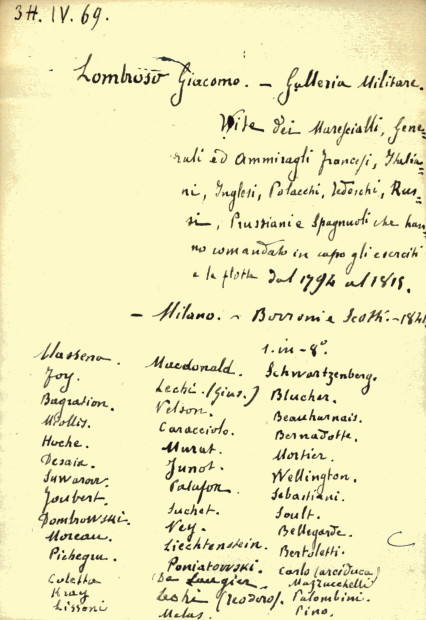 3H. IV. 69.
Lombroso Giacomo. - Galleria Militare.
Vite dei Marescialli, Gene=
rali ed Ammiragli francesi, Italia=
ni, Inglesi, Polacchi, Tedeschi, Rus=
si, Prussiani e Spagnuoli che han=
no comandato in capo gli eserciti
e le flotte dal 1794 al 1815.
- Milano. - Borroni e Scotti. - 1841
1. in-8°.
Massena.
Foy.
Bagration.
Miollis.
Hoche.
Desaix.
Suwarow.
Joubert.
Dombrowski.
Moreau.
Pichegru.
Coletta
Kray
Lissoni
Macdonald.
Lechi (Gius.)
Nelson.
Caracciolo.
Murat.
Junot.
Palafox.
Suchet.
Ney.
Liechtenstein.
Poniatowski.
De Laugier.
Lechi (Teodoro).
Melas.
Schwartzenberg.
Blucher.
Beauharnais.
Bernadotte.
Mortier.
Wellington.
Sebastiani.
Soult.
Bellegarde.
Bertoletti.
Carlo (arciduca)
Mazzucchelli
Palombini.
Pino.